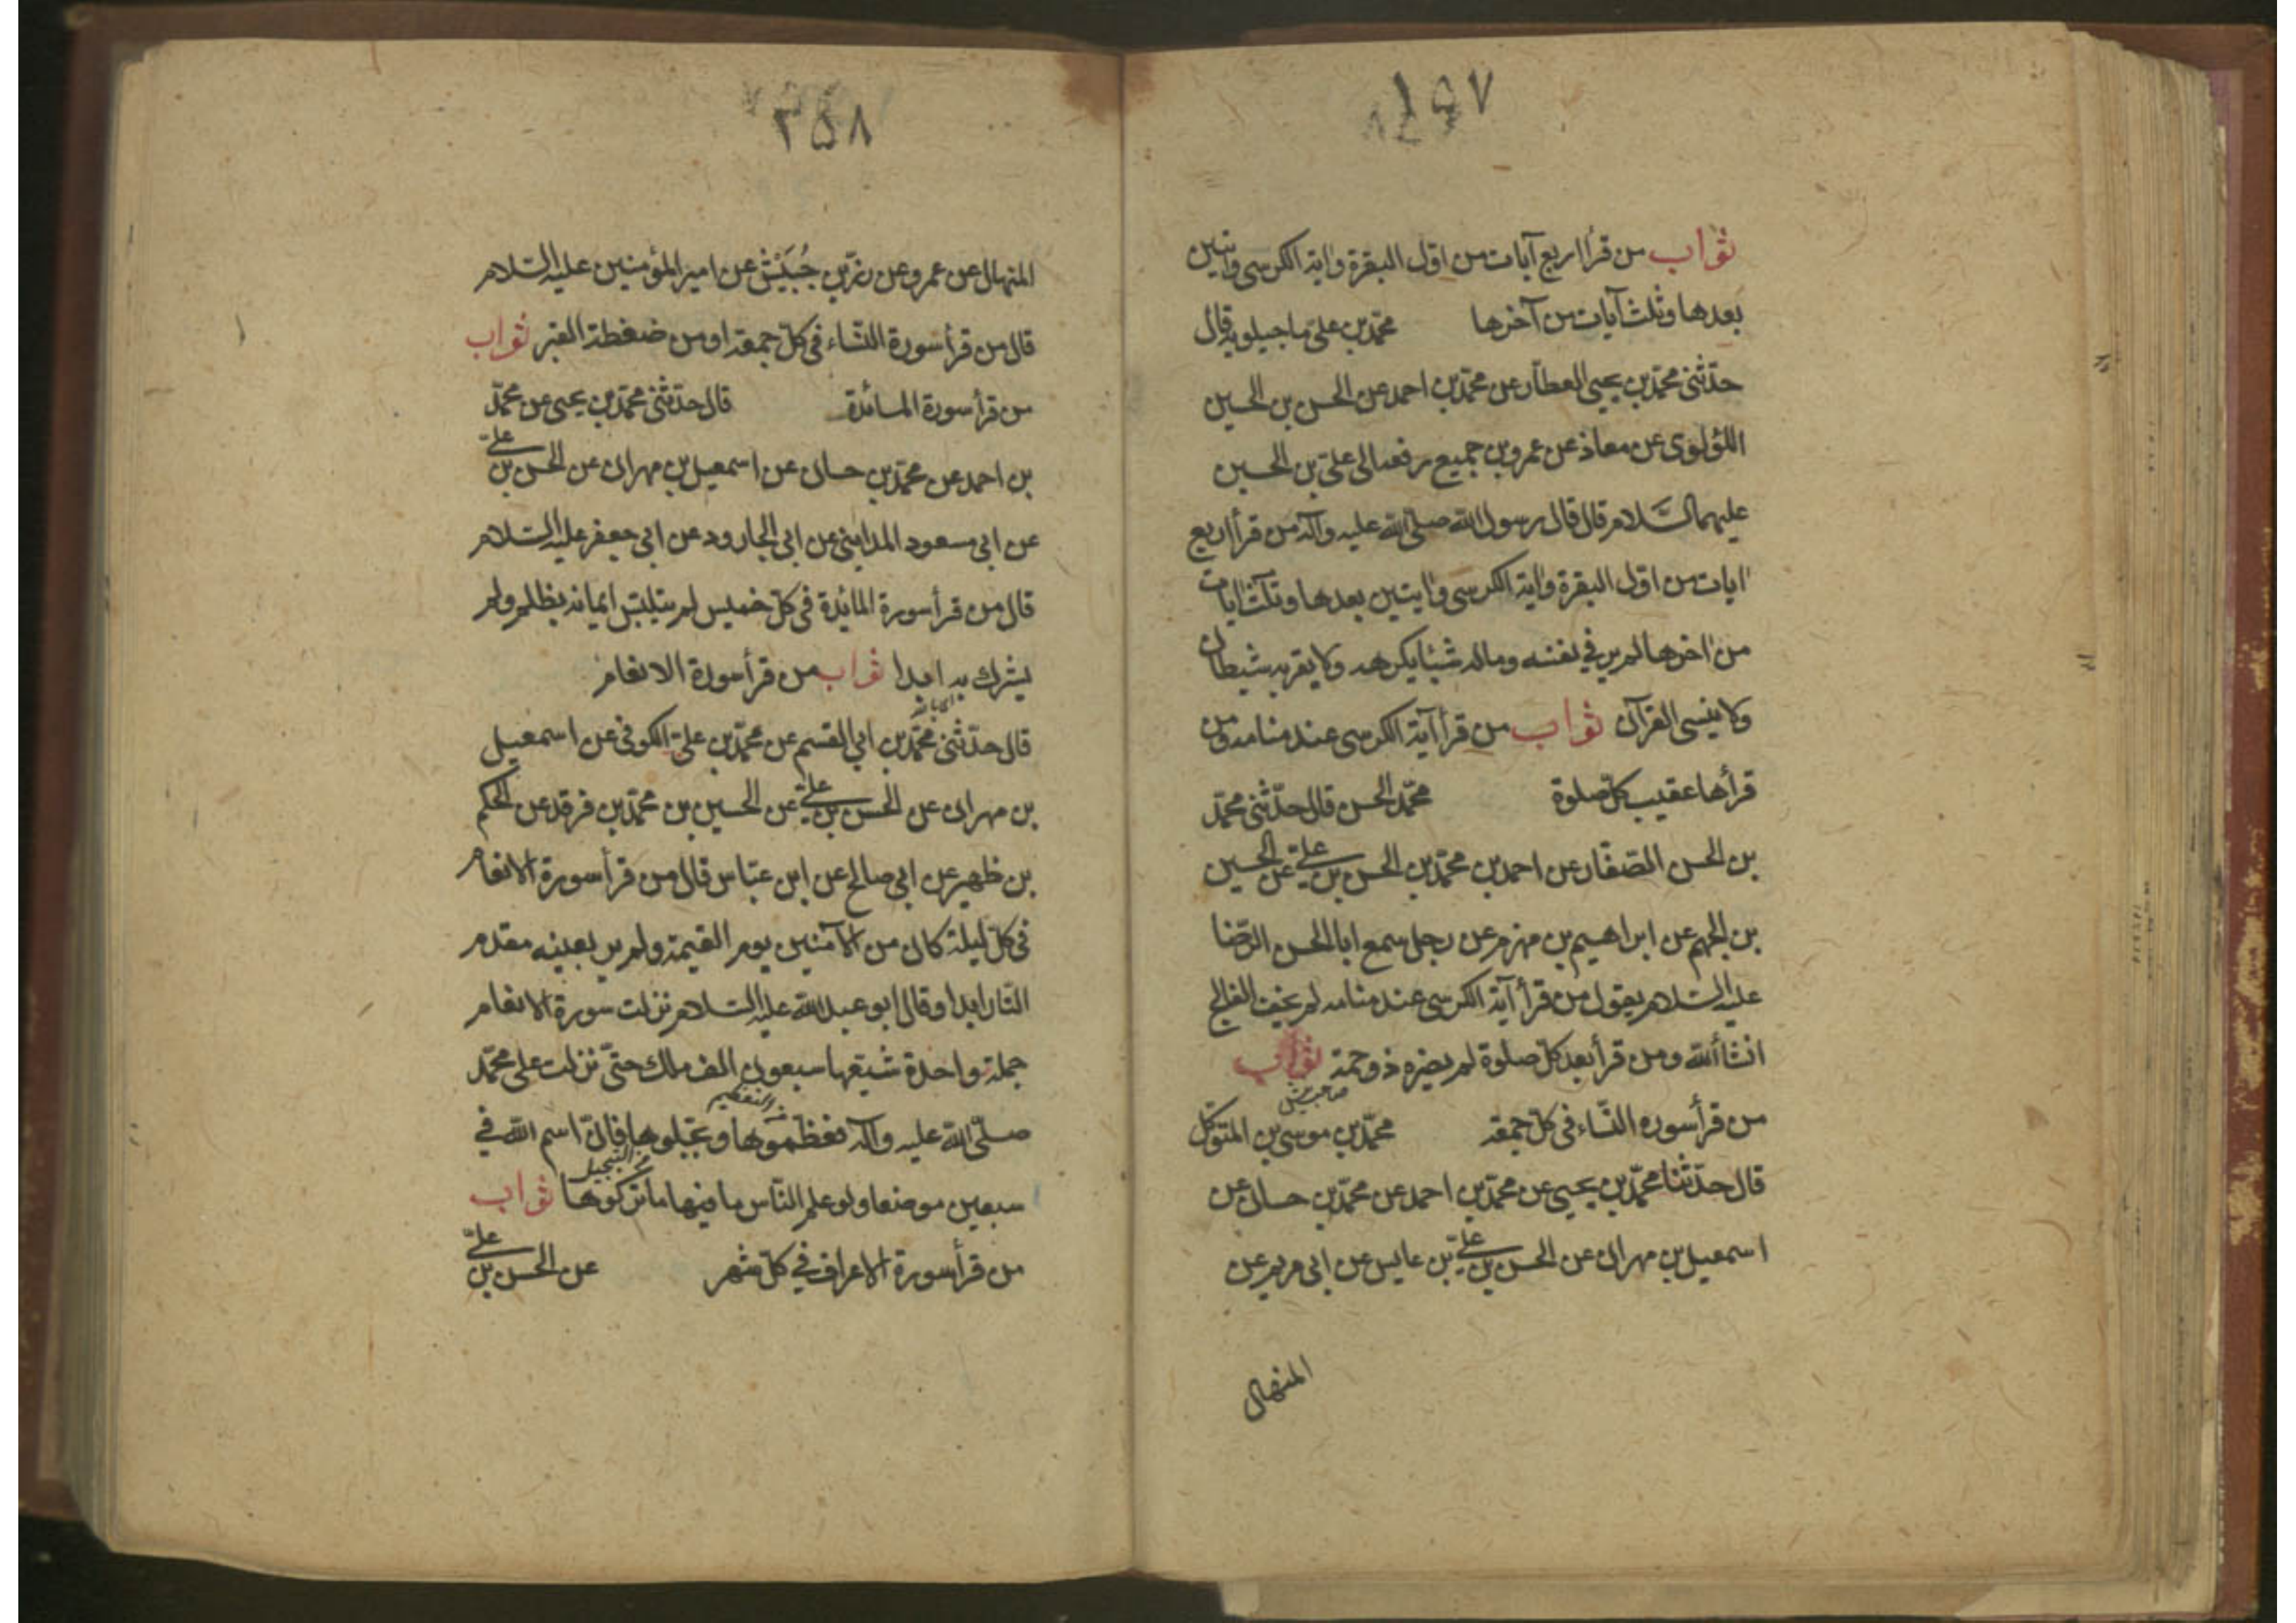 ثواب من قرأ اربع آيات من اول البقرة واية الكرسى وايتين
بعدها وثلث آيات من آخرها محمّد بن علىّ ماجيلويه قال
حدّثنى محمّد بن يحيى العطّار عن محمّد بن احمد عن الحسن بن الحسين
اللؤلؤى عن معاذ عن عمرو بن جميع رفعه الى علىّ بن الحسين
عليهما السَّلام قال قال رسول الله صلّى الله عليه وآله من قرأ اربع
ايات من اول البقرة واية الكرسى وايتين بعدها وثلث ايات
من اخرها لم ير في نفسه وماله شيئا يكرهه ولا يقربه شيطان
ولا ينسى القرآن ثواب من قرأ آية الكرسى عند منامه ومن
قرأها عقيب كلّ صلوة محمّد الحسن قال حدّثنى محمّد
بن الحسن الصّفار عن احمد بن محمّد بن الحسن بن علىّ عن الحسين
بن الجهم عن ابراهيم بن مهزم عن رجل سمع ابا الحسن الرّضا
عليه السّلام يقول من قرأ آية الكرسى عند منامه لم يخف الفالج
انشأ الله ومن قرأ بعد كلّ صلوة لم يضره ذو حمة ثواب
من قرأ سوره النّساء فى كلّ جمعة محمّد بن موسى بن المتوكّل
قال حدّثنا محمّد بن يحيى عن محمّد بن احمد عن محمّد بن حسان عن
اسمعيل بن مهران عن الحسن بن علىّ بن عابس عن ابى مريم عن
المنهال
٣٥٨
المنهال عن عمرو عن زرّ بن حُبَيْش عن امير المؤمنين عليه السّلام
قال من قرأ سورة النّساء فى كلّ جمعة اومن ضغطة القبر ثواب
من قرأ سورة المائدة قال حدّثنى محمّد بن يحيى عن محمّد
بن احمد عن محمّد بن حسان عن اسمعيل بن مهران عن الحسن بن علىّ
عن ابى مسعود المداينى عن ابى الجارود عن ابى جعفر عليه السّلام
قال من قرأ سورة المائدة فى كلّ خميس لم يتلبّس ايمانه بظلم ولم
يشرك به ابدا ثواب من قرأ سورة الانعام
قال حدّثنى محمّد بن ابى القسم عن محمّد بن علىّ الكوفى عن اسمعيل
بن مهران عن الحسن بن علىّ عن الحسين بن محمّد بن فرقد عن الحكم
بن ظهير عن ابى صالح عن ابن عبّاس قال من قرأ سورة الانعام
فى كلّ ليلة كان من الآمنين يوم القيمة ولم ير بعينه مقدم
النّار ابدا وقال ابو عبد الله عليه السّلام نزلت سورة الانعام
جملة واحدة شيّعها سبعون الف ملك حتّى نزلت على محمّد
من التعظيم
صلّى الله عليه وآله فعظّموها وبجّلوها فانّ اسم الله فى
من التبجيل
سبعين موضعا ولو علم النّاس ما فيها ما تركوها ثواب
من قرأ سورة الاعراف في كلّ شهر عن الحسن بن علىّ